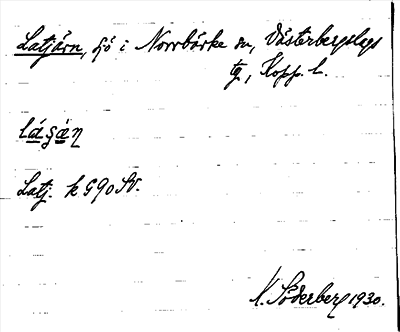 Latjärn, sjö i Norrbärke sn, Västerbergslags
tg, Kopp. l.
låsän
Latj. k G90 SV.
K. Söderberg 1930.